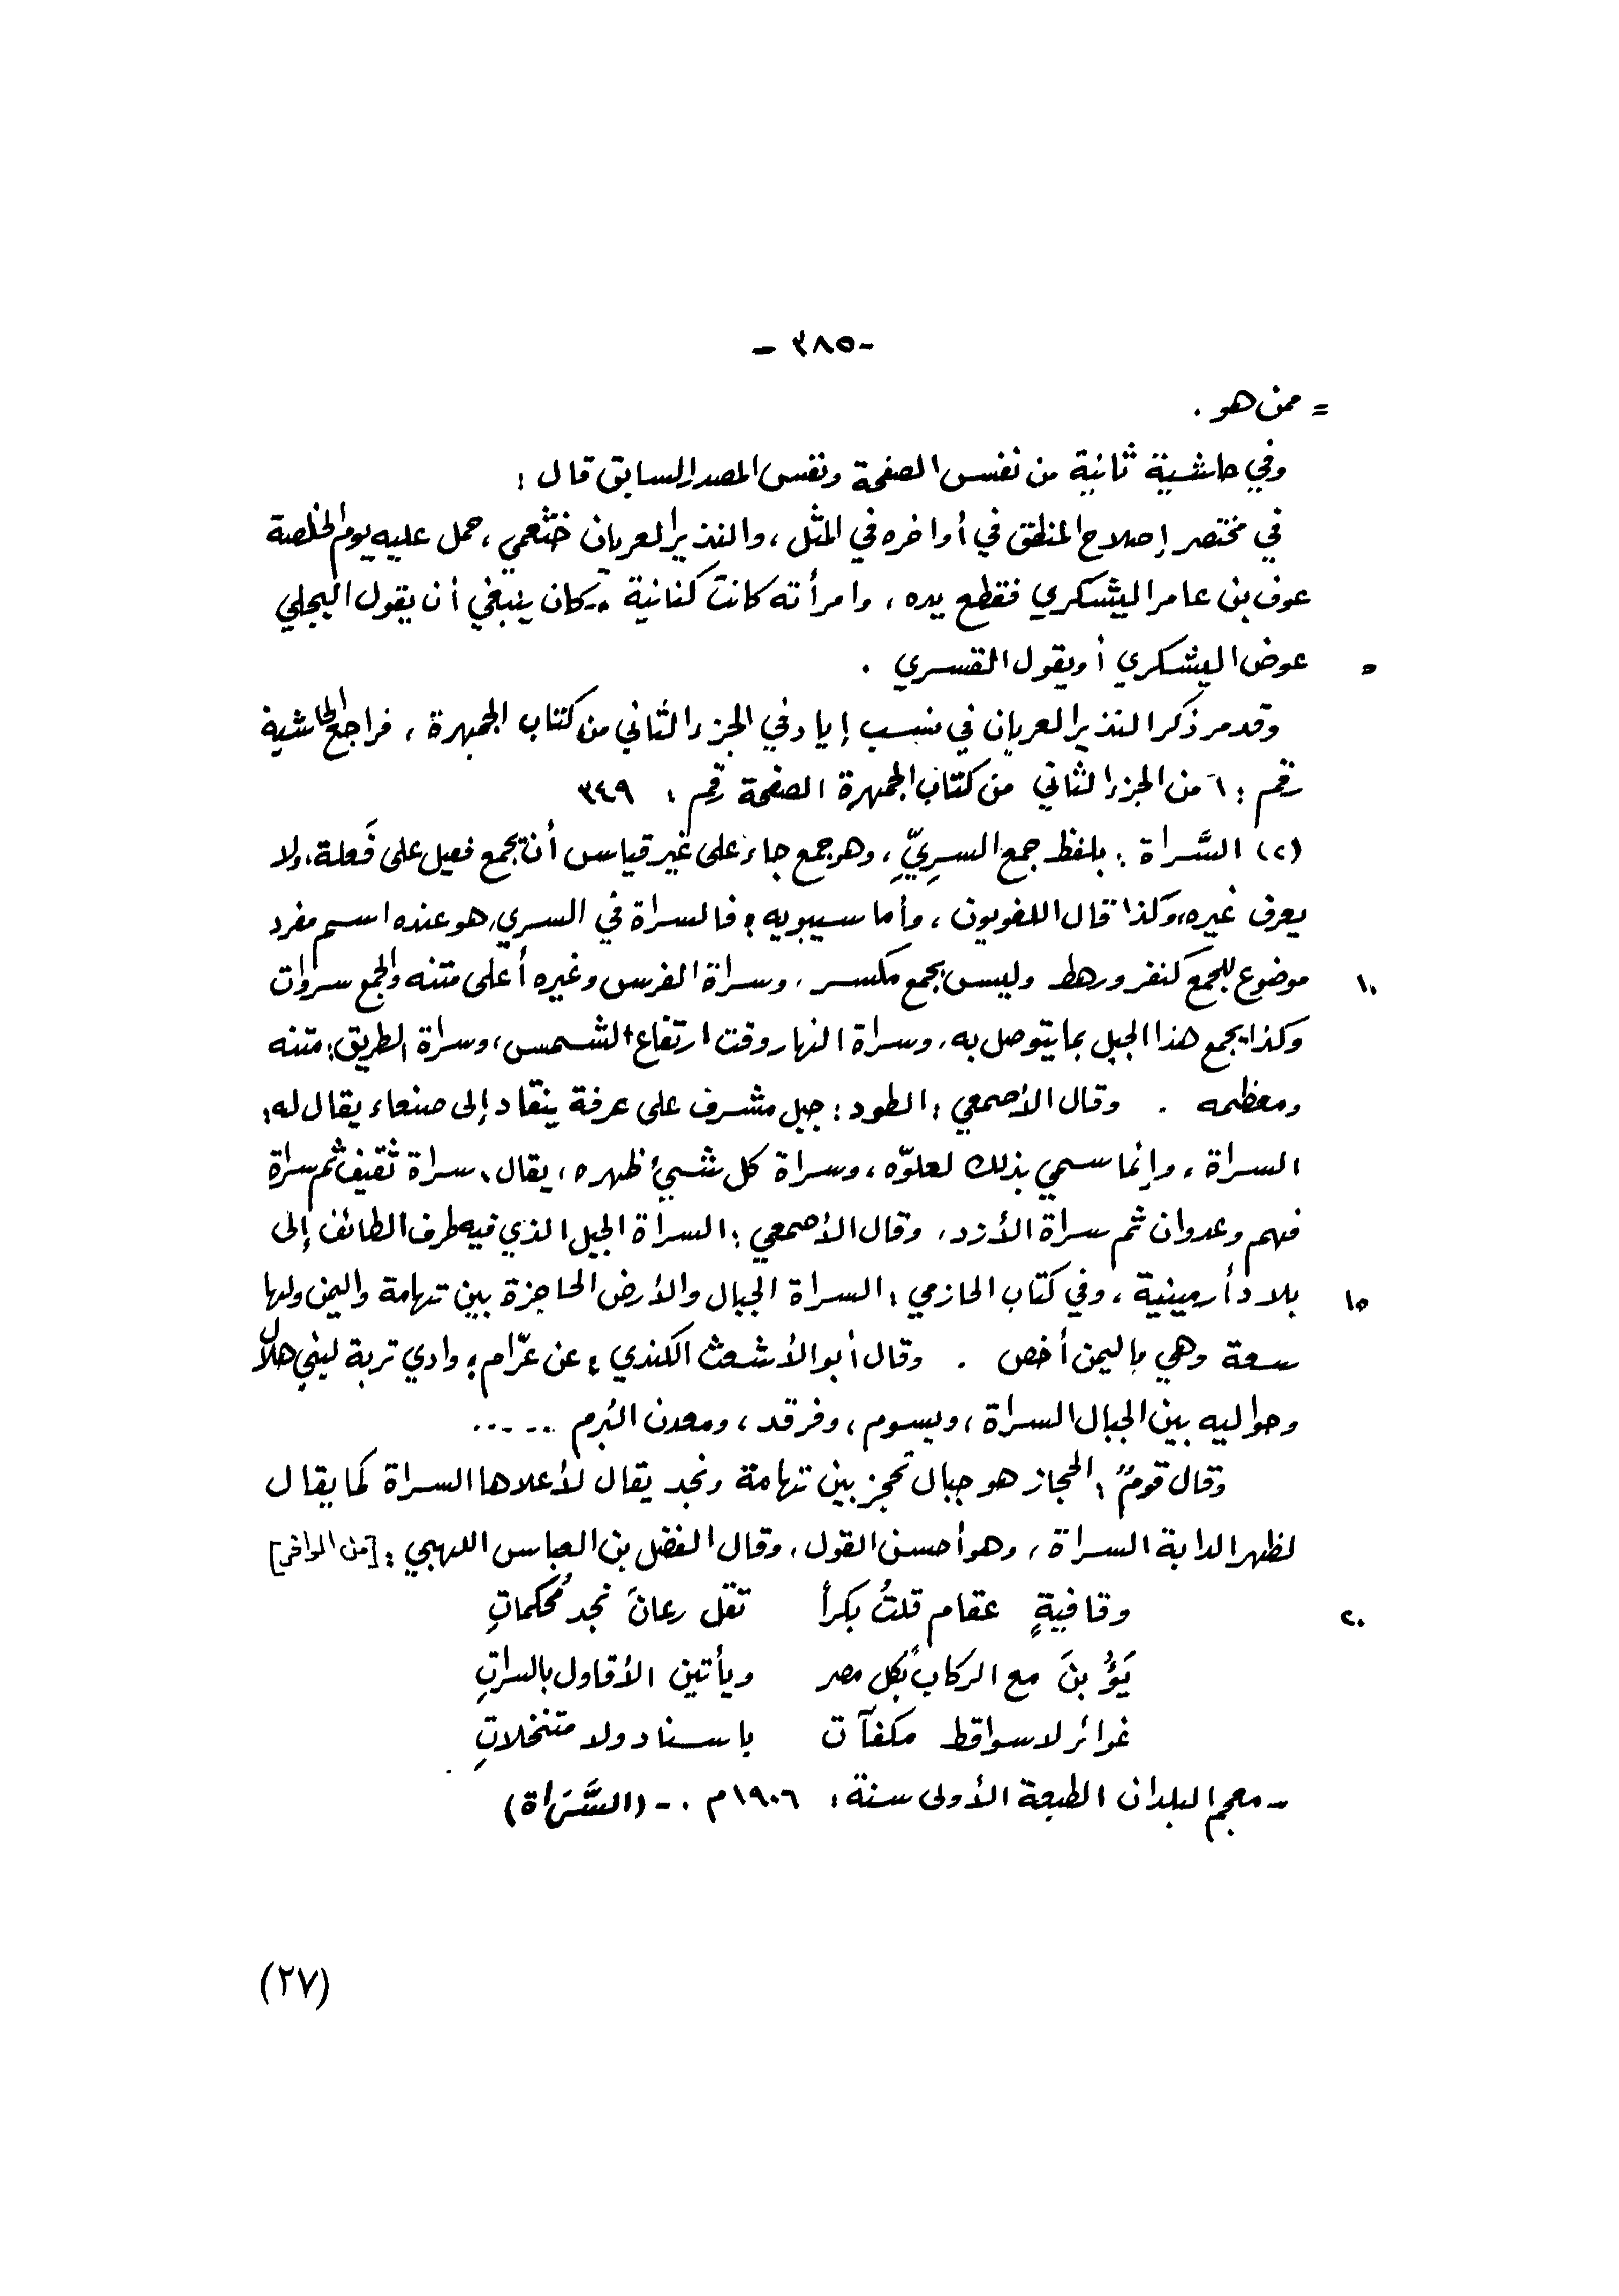 - ٣٨٥ -
= ممن هو .
وفي حاشية ثانية من نفس الصفحة ونفس المصدر السابق قال :
في مختصر إصلاح المنطق في أواخره في المثل ، والنذير العريان خثعمي ، حمل عليه يوم الخلصة
عوف بن عامر اليشكري فقطع يده ، وامرأته كانت كنانية .. كان ينبغي أن يقول البجلي
٥ عوض اليشكري أويقول القسري .
وقد مر ذكر النذير العريان في نسب إياد في الجزء الثاني من كتاب الجمهرة ، فراجع الحاشية
رقم : ٦ من الجزء الثاني من كتاب الجمهرة الصفحة رقم : ٣٤٩
(٢) السَّراة : بلفظ جمع السرِيِّ ، وهو جمع جاء على غير قياس أن يجمع فعيل على فَعلة ، ولا
يعرف غيره ، وكذا قال اللغويون ، وأما سيبويه : فالسراة في السري ، هو عنده اسم مفرد
١٠ موضوع للجمع كنفر ورهط وليس بجمع مكسر ، وسراة الفرس وغيره أعلى متنه والجمع سروات
وكذا يجمع هذا الجبل بما يتوصل به ، وسراة النهار وقت ارتفاع الشمس ، وسراة الطريق : متنه
ومعظمه . وقال الأصمعي : الطود : جبل مشرف على عرفة ينقاد إلى صنعاء يقال له :
السراة ، وإنما سمي بذلك لعلوّه ، وسراة كل شيئ ظهره ، يقال : سراة ثقيف ثم سراة
فهم وعدوان ثم سراة الأزد ، وقال الأصمعي : السراة الجبل الذي فيه طرف الطائف إلى
١٥ بلاد أرمينية ، وفي كتاب الحازمي : السراة الجبال والأرض الحاجزة بين تهامة واليمن ولها
سعة وهي باليمن أخص . وقال أبو الأشعث الكندي ؛ عن عرّام ؛ وادي تربة لبني هلال
وحواليه بين الجبال السراة ، ويسوم ، وفرقد ، ومعدن البُرم .....
وقال قومٌ : الحجاز هو جبال تحجز بين تهامة ونجد يقال لأعلاها السراة كما يقال
لظهر الدابة السراة ، وهو أحسن القول ، وقال الفضل بن العباس اللهبي : [من الوافر]
٢٠ وقافيةٍ عقام قلتُ بكراً تقل رعانَ نجد مُحكماتِ
يَؤُبنَ مع الركاب بكل مصر ويأتين الأقاول بالسراتِ
غوائر لا سواقط مكفآت باسناد ولا متنخلاتِ
- معجم البلدان الطبعة الأولى سنة : ١٩٠٦م . - (السَّرَاة)
(٢٧)